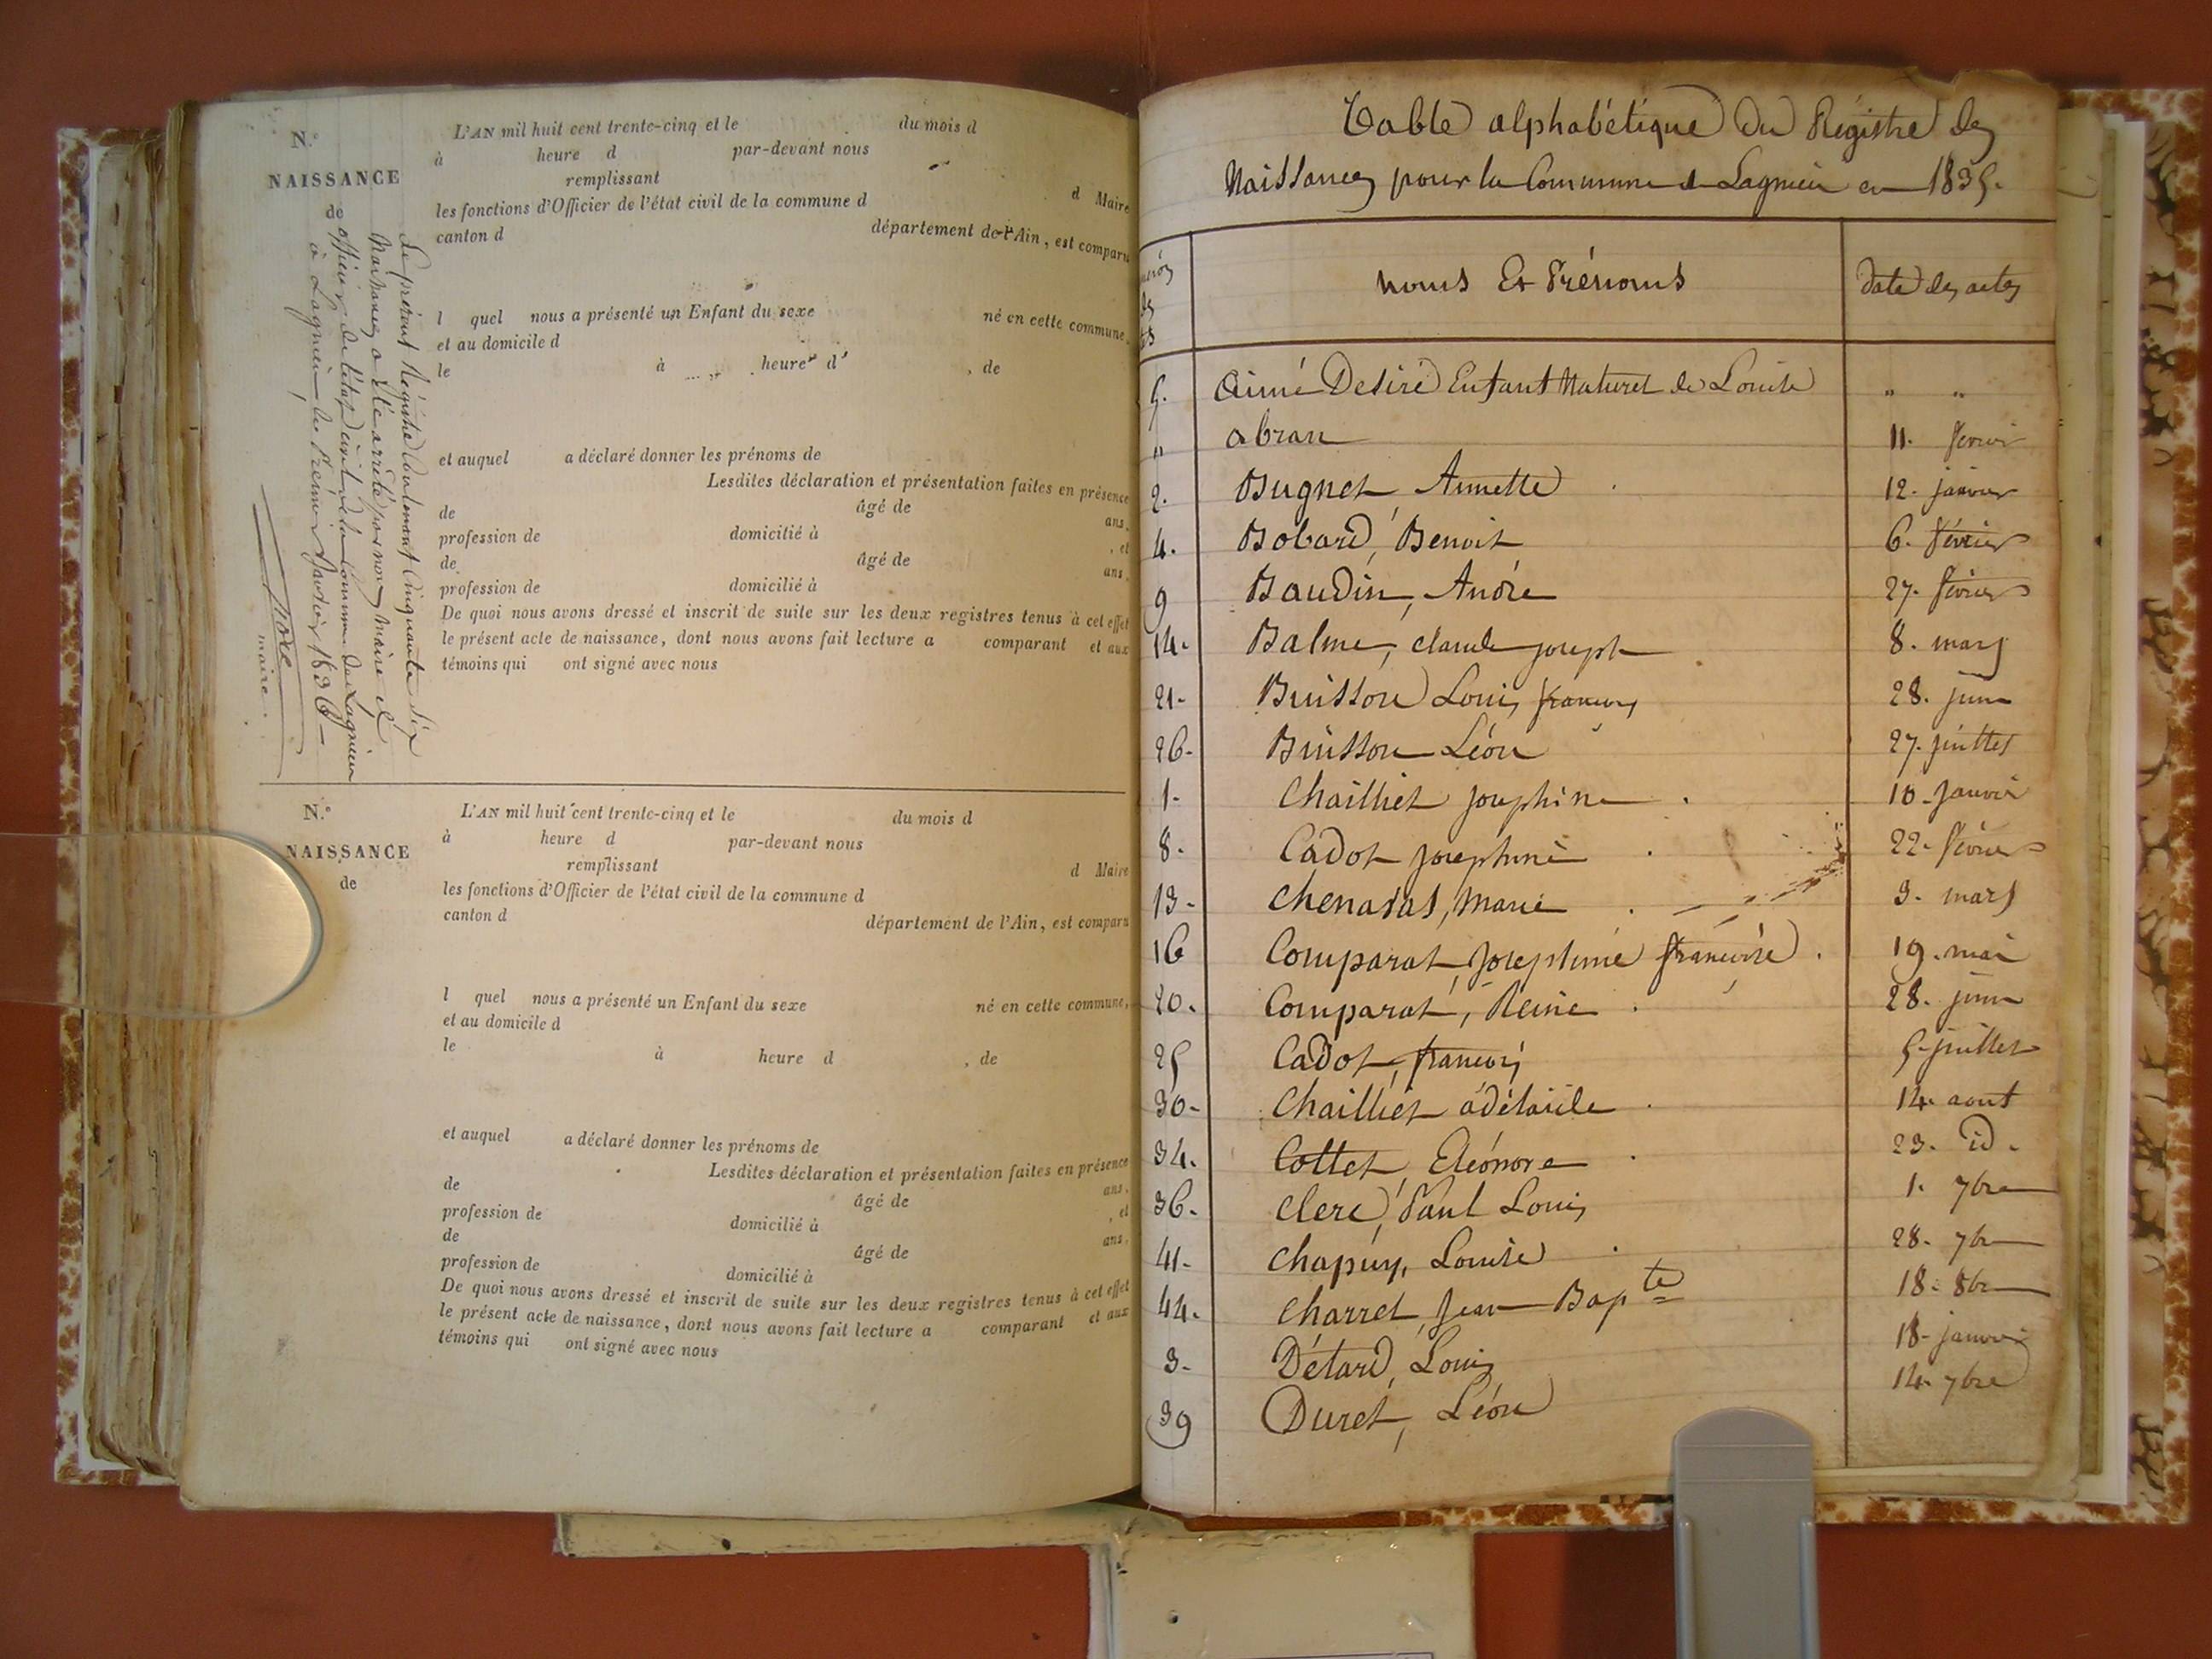 N.°
NAISSANCE
de
L'AN mil huit cent trente-cinq et le du mois d
à heure d par-devant nous
remplissant d Maire
les fonctions d'Officier de l'état civil de la commune d
canton d département de l'Ain, est comparu
l quel nous a présenté un Enfant du sexe né en cette commune,
et au domicile d
le à heure d , de
et auquel a déclaré donner les prénoms de
Lesdites déclaration et présentation faites en présence
de âgé de ans,
profession de domicilié à , et
de âgé de ans,
profession de domicilié à
De quoi nous avons dressé et inscrit de suite sur les deux registres tenus à cet effet
le présent acte de naissance, dont nous avons fait lecture a comparant et aux
témoins qui ont signé avec nous
Le présent Régistre Contenant Cinquante Six
Naissances a été arrêté par nous maire et
officier de l'état civil de la Commune de Lagnieu
à Lagnieu le Premier Janvier 1836
maire.
N.°
NAISSANCE
de
L'AN mil huit cent trente-cinq et le du mois d
à heure d par-devant nous
remplissant d Maire
les fonctions d'Officier de l'état civil de la commune d
canton d département de l'Ain, est comparu
l quel nous a présenté un Enfant du sexe né en cette commune,
et au domicile d
le à heure d , de
et auquel a déclaré donner les prénoms de
Lesdites déclaration et présentation faites en présence
de âgé de ans,
profession de domicilié à , et
de âgé de ans,
profession de domicilié à
De quoi nous avons dressé et inscrit de suite sur les deux registres tenus à cet effet
le présent acte de naissance, dont nous avons fait lecture a comparant et aux
témoins qui ont signé avec nous
Table alphabétique du Régistre des
Naissances pour la Commune de Lagnieu en 1835.
noms Et Prénoms Date des actes
5. Aimé Desiré Enfant Naturel de Louise " "
" abran 11. février
2. Bugnet, Annette 12. janvier
4. Bobard, Benoit 6. février
9 Baudin, André 27. février
14. Balme, claude joseph 8. mars
21- Buisson Louis françois 28. juin
26- Buisson Léon 27. juillet
1- Chailliet josephine 10. janvier
8- Cadot josephine 22. février
13- Chenaras, Marie 3. mars
16 Comparat, Josephine françoise 19. mai
20. Comparat, Reine 28. juin
25 Cadot, françois 5. juillet
30- Chailliet adélaïde 14. aout
34. Collet, Eléonore 23. id.
36- Clerc, Paul Louis 1. 7bre
41- Chapuy, Louise 28. 7bre
44. Charret, Jean Bapte 18. 8bre
3- Détard, Louis 18. janvier
39 Duret, Léon 14. 7bre